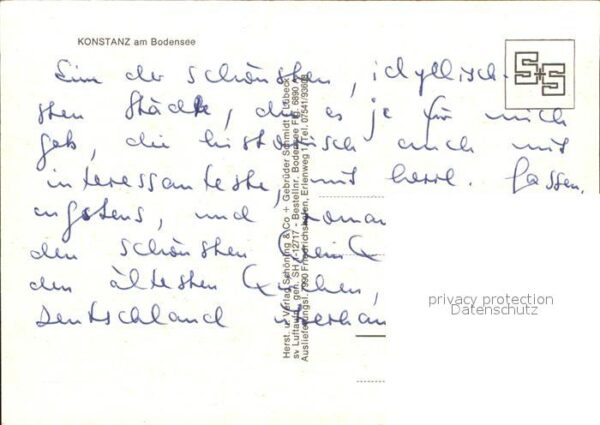 KONSTANZ am Bodensee
S+S
Eine der schönsten, idyllisch-
sten Städte, die es je für mich
gab, die historisch auch mit
interessanteste, mit herrl. Gassen,
und
den schönsten
den ältesten
Deutschland überhau
Herst. u. Verlag Schöning & Co + Gebrüder Schmidt Lübeck
sv Luftaufn. gen. SH 1-12717 - Bestellnr. Bodensee Fdg. 6890 A
Auslieferungsl. 7990 Friedrichshafen, Erlenweg 1, Tel. 07541/93608
privacy protection
Datenschutz